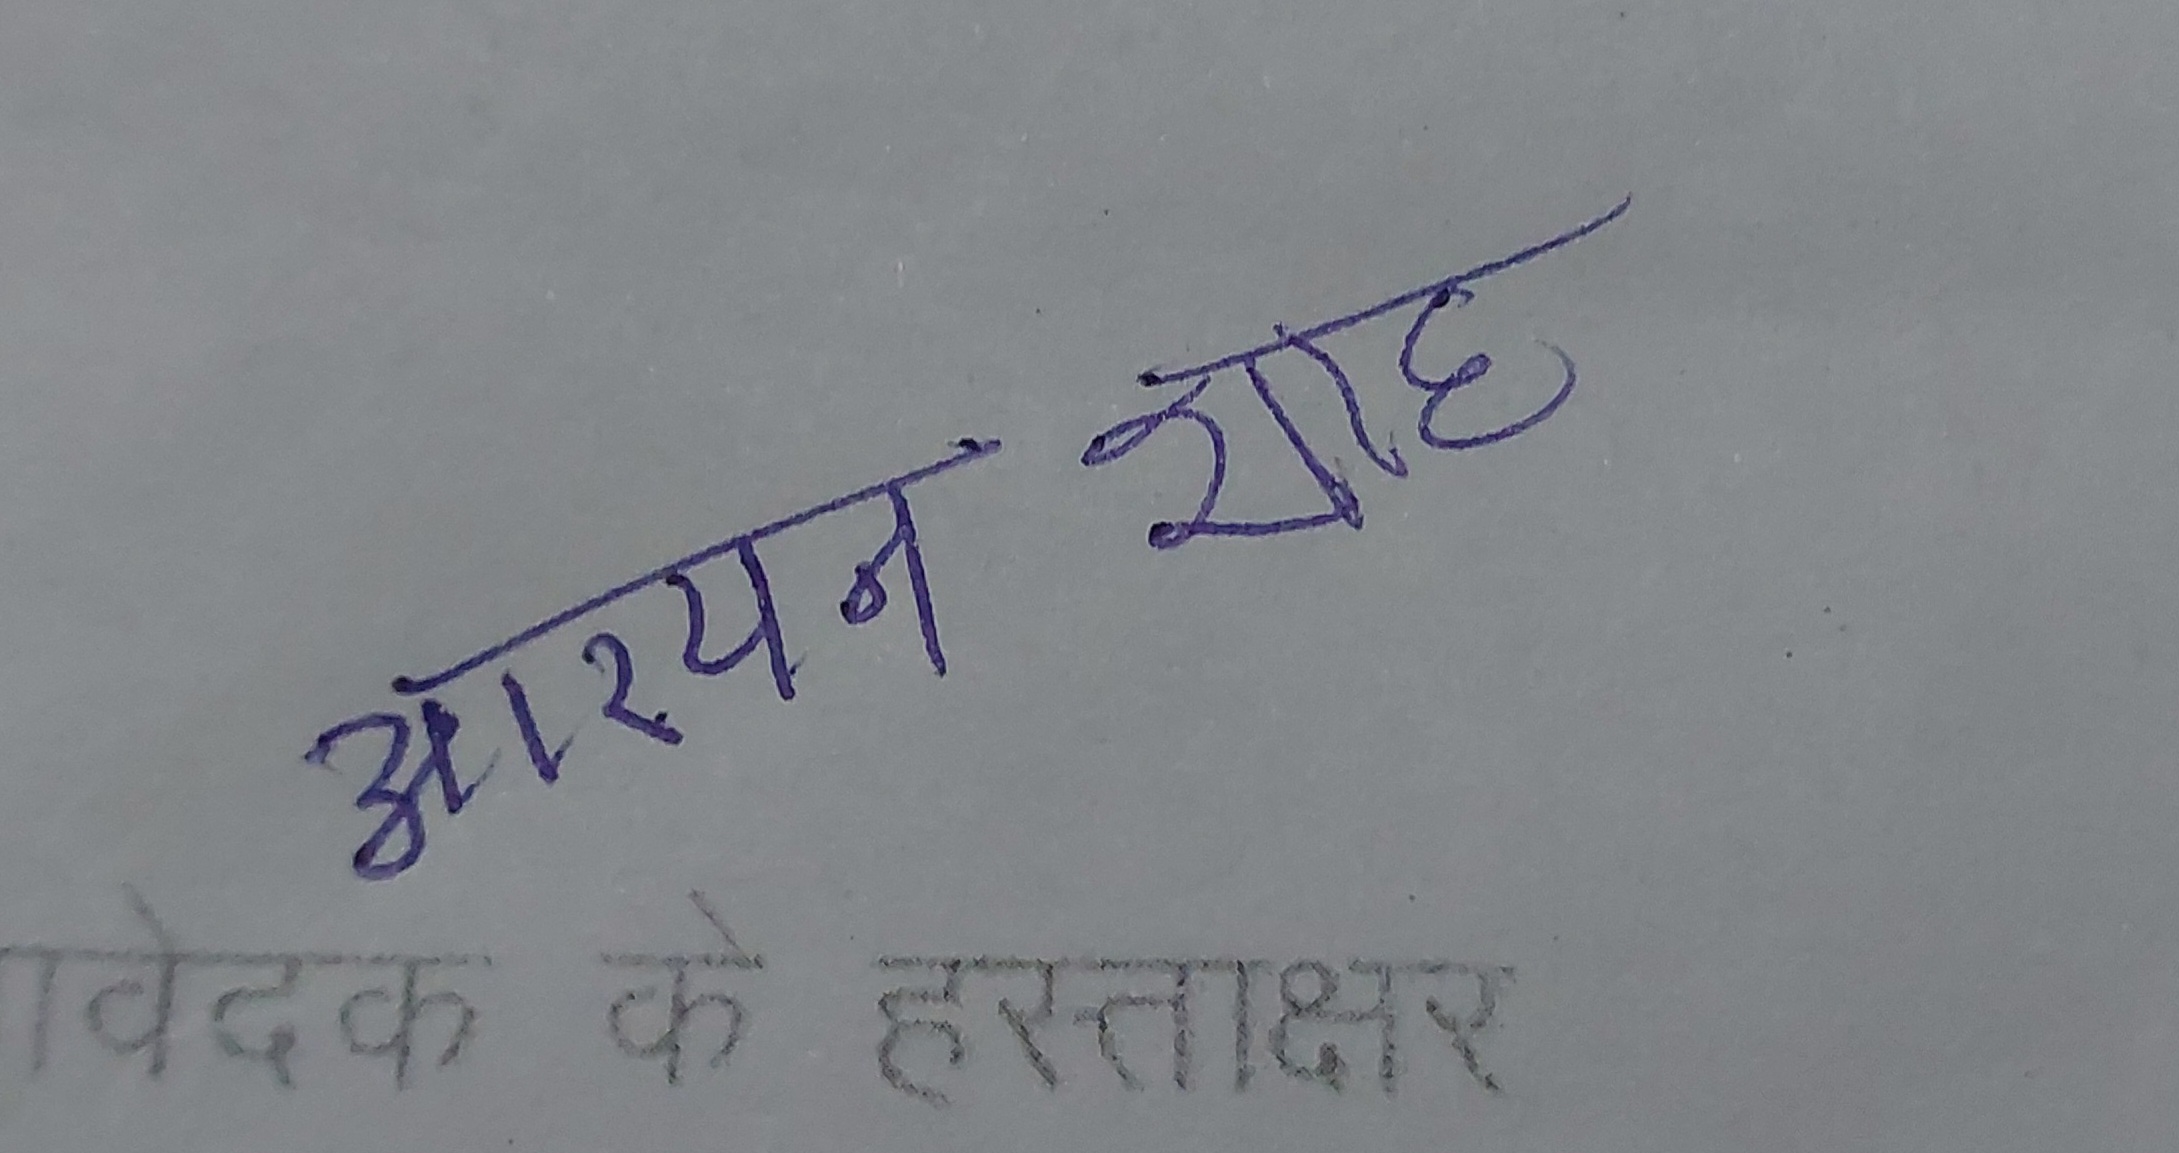 आरयन शाह
ावेदक के हस्ताक्षर